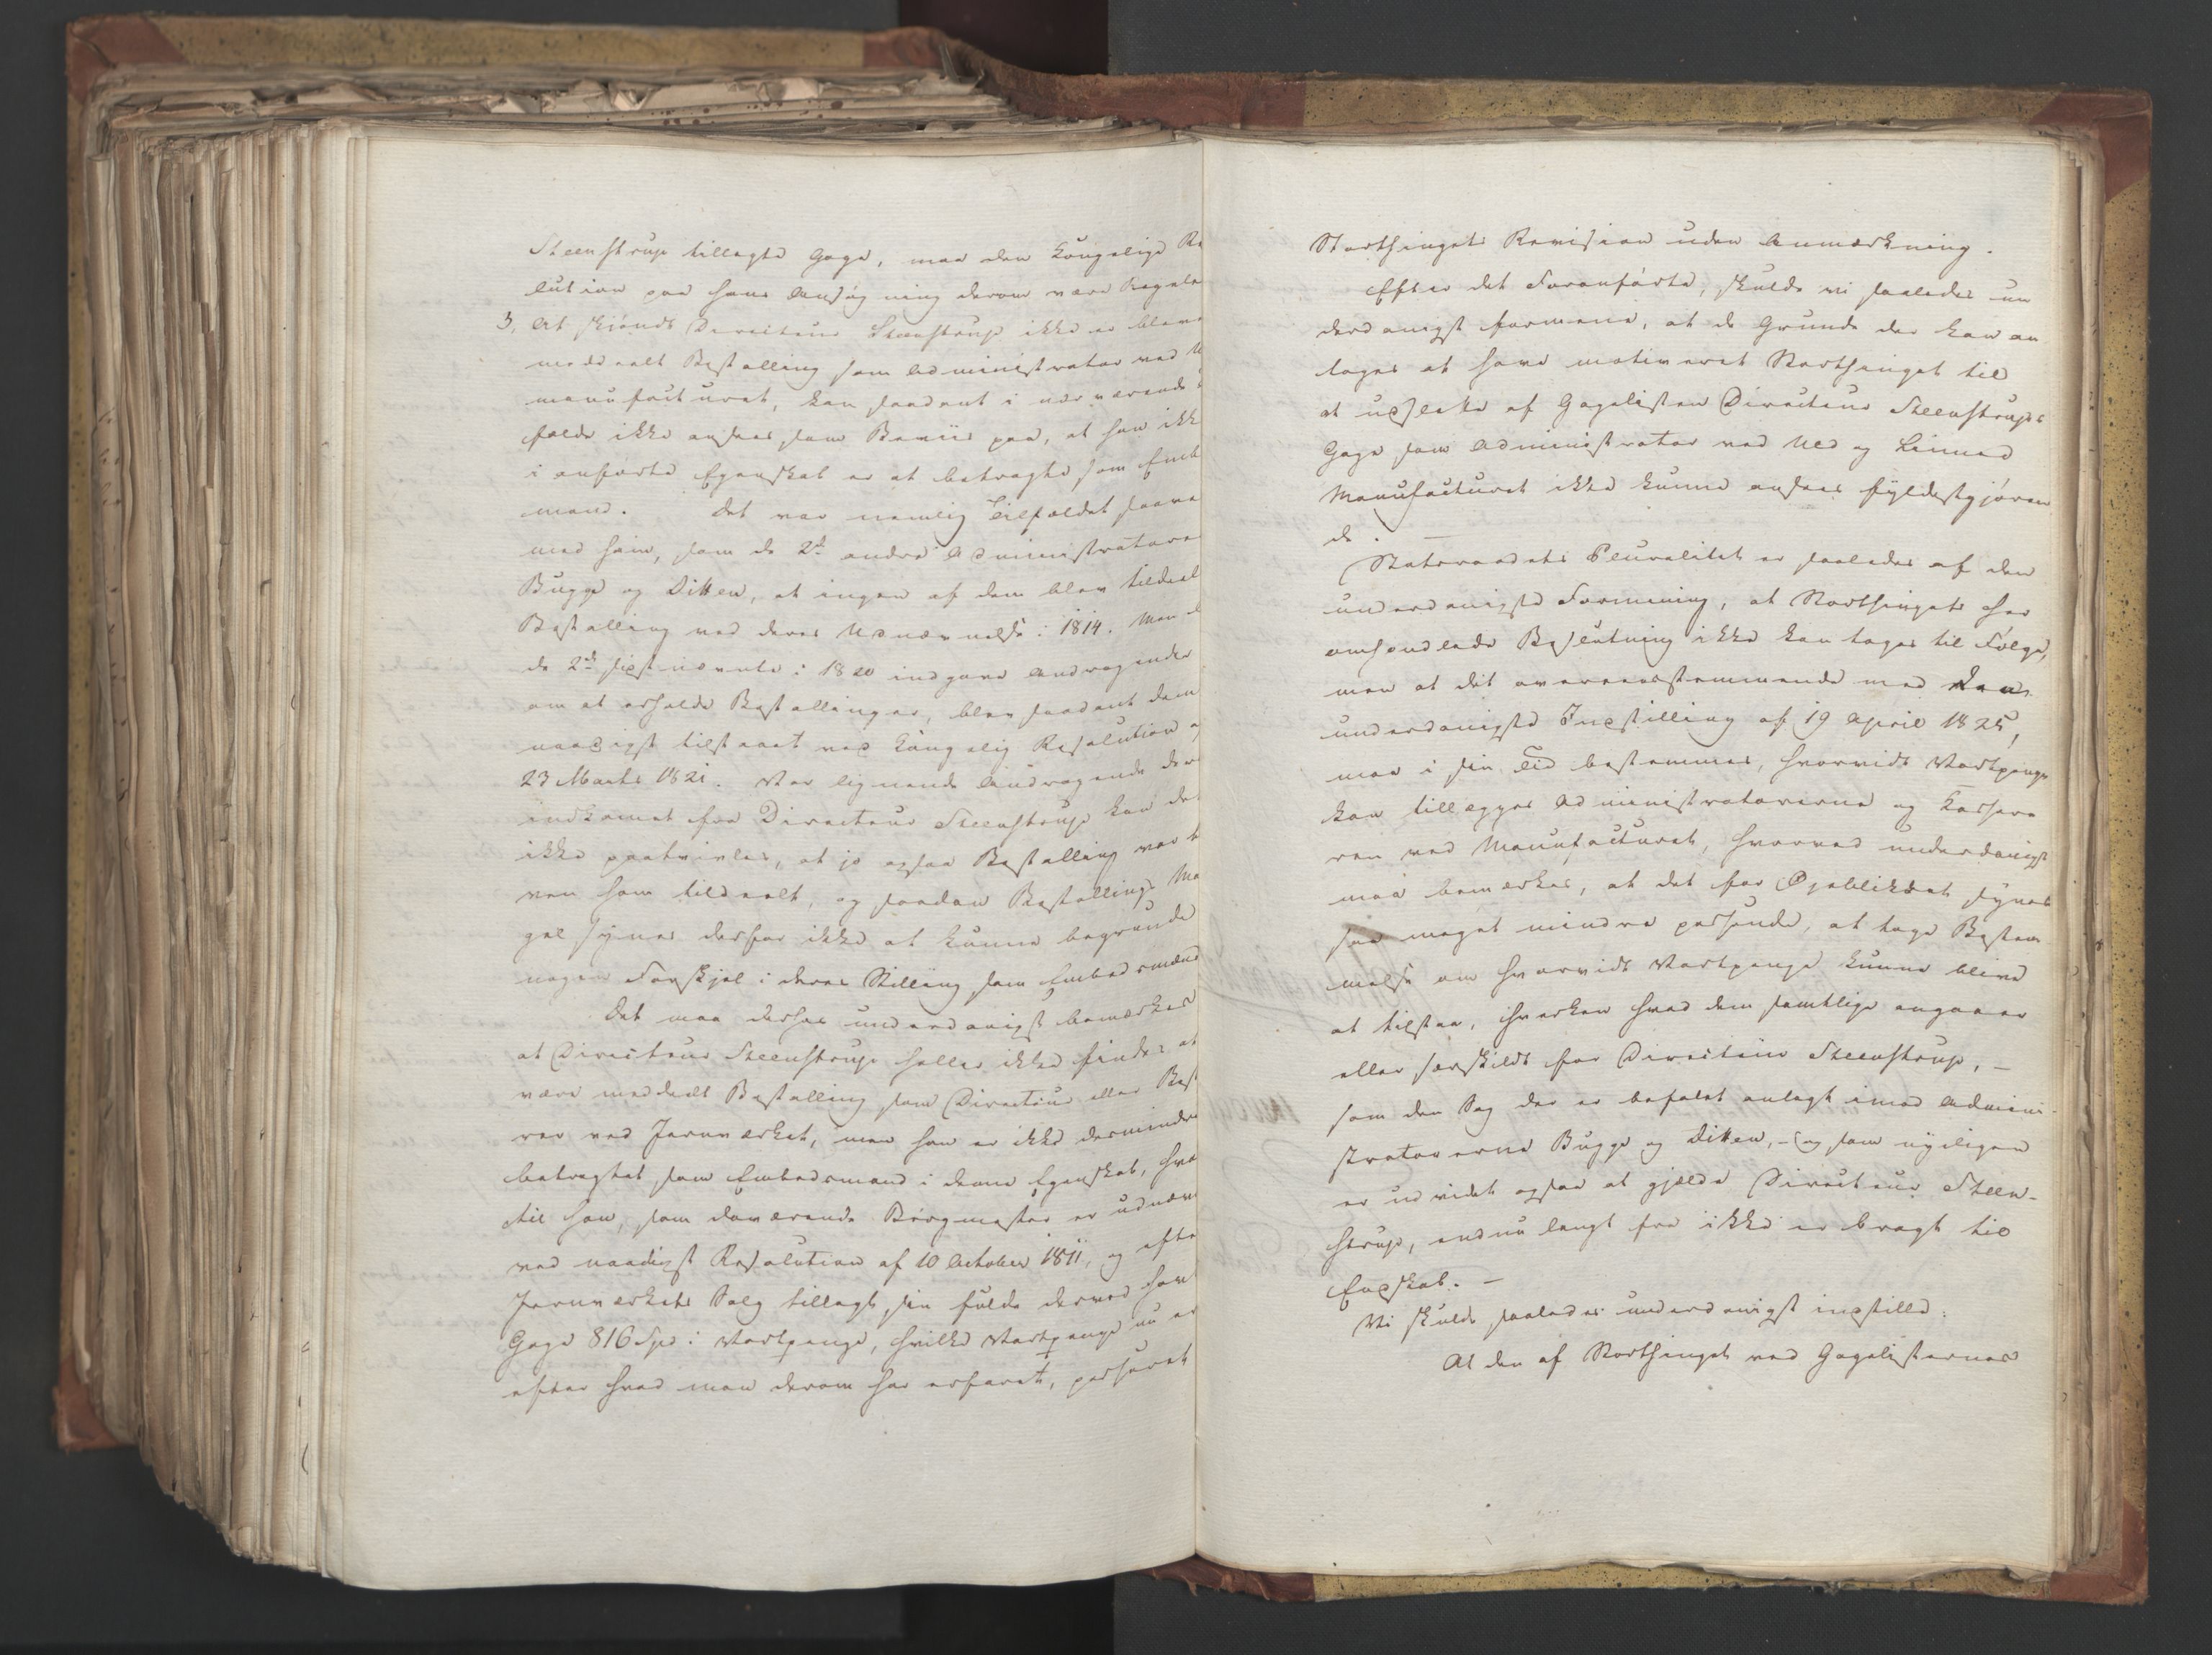 Steenstrup tillagte Gage, maa den Kongelige Re
lution paa hans Ansøgning derom være Regele
3, At skjøndt Directeur Steenstrup ikke er bleve
meddeelt Bestalling som Administrator ved U
manufacturet, kan saadant i nærværende
fælde ikke ansees som Beviis paa, at han ikk
i anførte Egenskab er at betragte som Emb
mand. Det var nemlig Tilfældet saave
med ham, som de 2de andre Administratorer
Bugge og Ditten, at ingen af dem blev tildeel
Bestalling ved deres Udnævnelse i 1814. Men d
de 2de sidstnævnte i 1820 indgave Andragender
om at erholde Bestallinger, blev saadant dem
naadigst tilstaaet ved Kongelig Resolution af
23 Marts 1821. Var lignende Andragende der
indkommet fra Directeur Steenstrup kan det
ikke paatvivles, at jo ogsaa Bestalling var b
ven ham tildeelt, og saadan Bestallings Ma
gel synes derfor ikke at kunne begrunde
nogen Forskjel i deres Stilling som Embedsmænd
Det maa derhos underdanigst bemærkes
at Directeur Steenstrup heller ikke findes at
være meddeelt Bestalling som Directeur eller Best
rer ved Jernværket, men han er ikke desmindre
betragtet som Embedsmand i denne Egenskab, hvor
til han, som daværende Bergmester er udnævn
ved naadigst Resolution af 10 October 1811, og efter
Jernværkets Salg tillagt sin fulde derved havt
Gage 816 Spd i Vartpenge, hvilke Vartpenge nu er
efter hvad man derom har erfaret, passeret
Storthingets Revision uden Anmærkning.
Efter det Foranførte, skulde vi saaledes un
derdanigst formene, at de Grunde der kan an
tages at have motiveret Storthinget til
at udslette af Gagelisten Directeur Steenstrups
Gage som Administrator ved Uld og Linned
Manufacturet ikke kunne ansees fyldestgjøren
de. —
Statsraadets Pluralitet er saaledes af den
underdanigste Formening, at Storthingets her
omhandlede Beslutning ikke kan tages til Følge,
men at det overeensstemmende med den
underdanigste Indstilling af 19 April 1825,
maa i sin Tid bestemmes, hvorvidt Vartpenge
kan tillægges Administratorerne og Kassere
ren ved Manufacturet, hvorved underdanigst
maa bemærkes, at det for Øjeblikket synes
saa meget mindre passende, at tage Bestem
melse om hvorvidt Vartpenge kunne blive
at tilstaa, hverken hvad dem samtlige angaaer
eller særskildt for Directeur Steenstrup, —
som den Sag der er befalet anlagt imod Admini
stratorerne Bugge og Ditten, — og som nyeligen
er udvidet ogsaa at gjælde Directeur Steen-
strup, endnu langt fra ikke er bragt til
Endskab. —
Vi skulde saaledes underdanigst indstille:
At den af Storthinget ved Gagelisternes